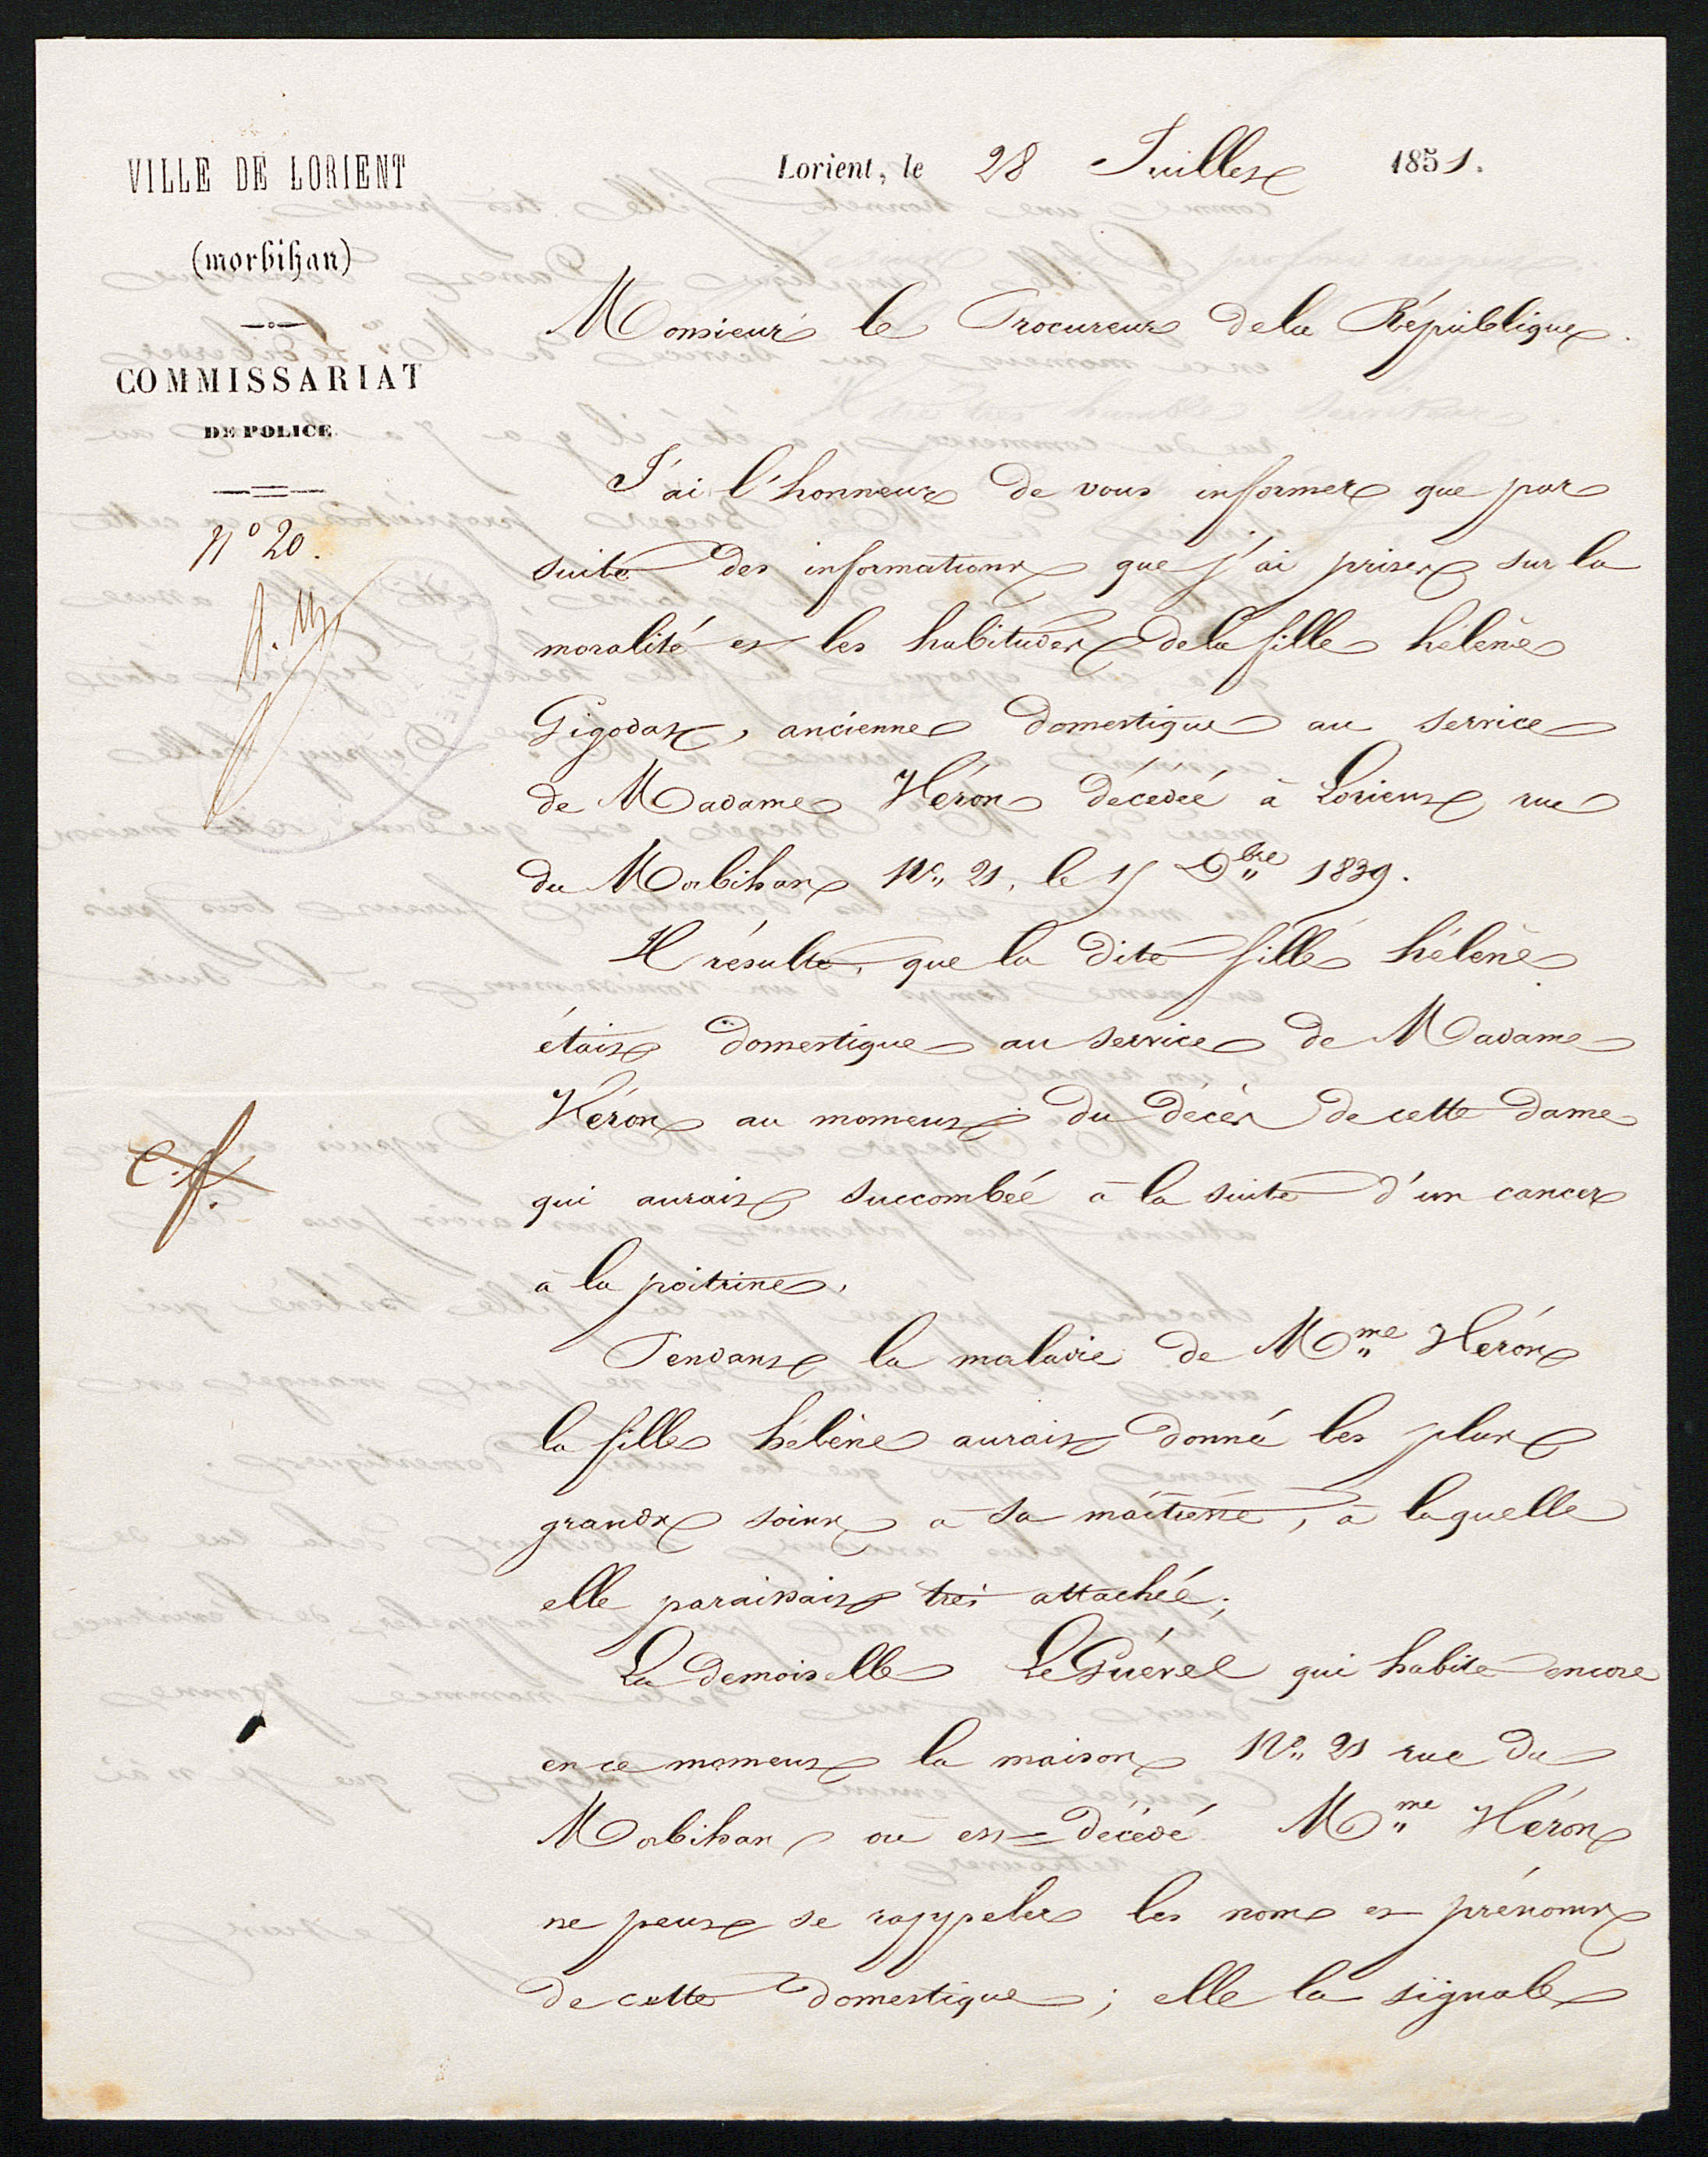 VILLE DE LORIENT
(morbihan)
COMMISSARIAT
DE POLICE
N° 20.
Lorient, le 28 Juillet 1851.
Monsieur le Procureur de la République.
J'ai l'honneur de vous informer que par
suite des informations que j'ai prises sur la
moralité et les habitudes de la fille hélène
Gigodat, ancienne domestique au service
de Madame Héron décédée à Lorient, rue
du Morbihan N° 21, le 15 9bre 1839.
Il résulte, que la dite fille hélène
était domestique au service de Madame
Héron au moment du décès de cette dame
qui aurait succombée à la suite d'un cancer
à la poitrine.
Pendant la maladie de Mme Héron
la fille hélène aurait donné les plus
grands soins à sa maîtresse, à laquelle
elle paraissait très attachée;
La demoiselle Le Guével qui habite encore
en ce moment la maison N° 21 rue du
Morbihan où est décédé Mme Héron
ne peut se rappeler les nom et prénoms
de cette domestique; elle la signale